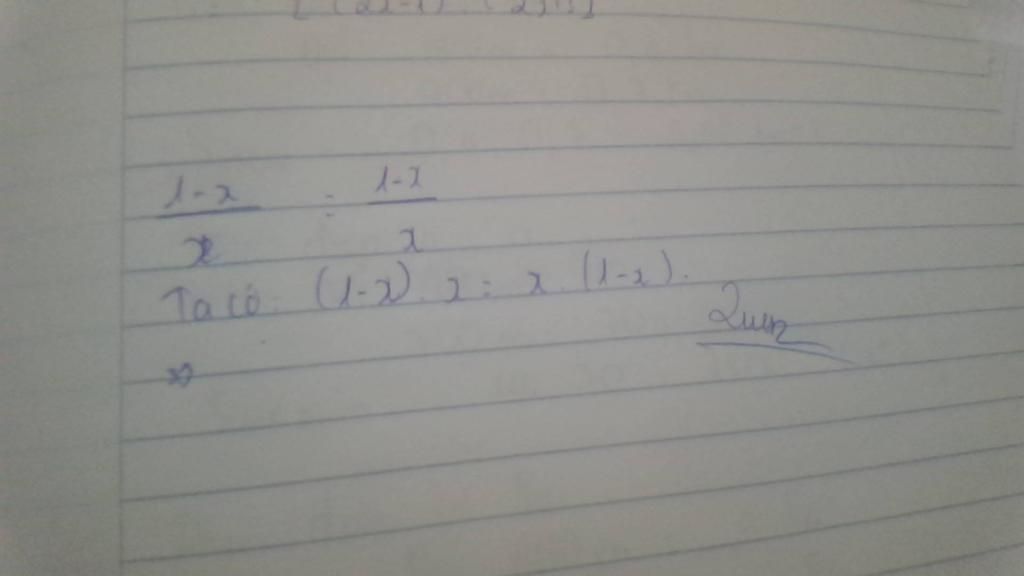 (1-x)/x = (1-x)/x
Ta có: (1-x). x = x. (1-x).